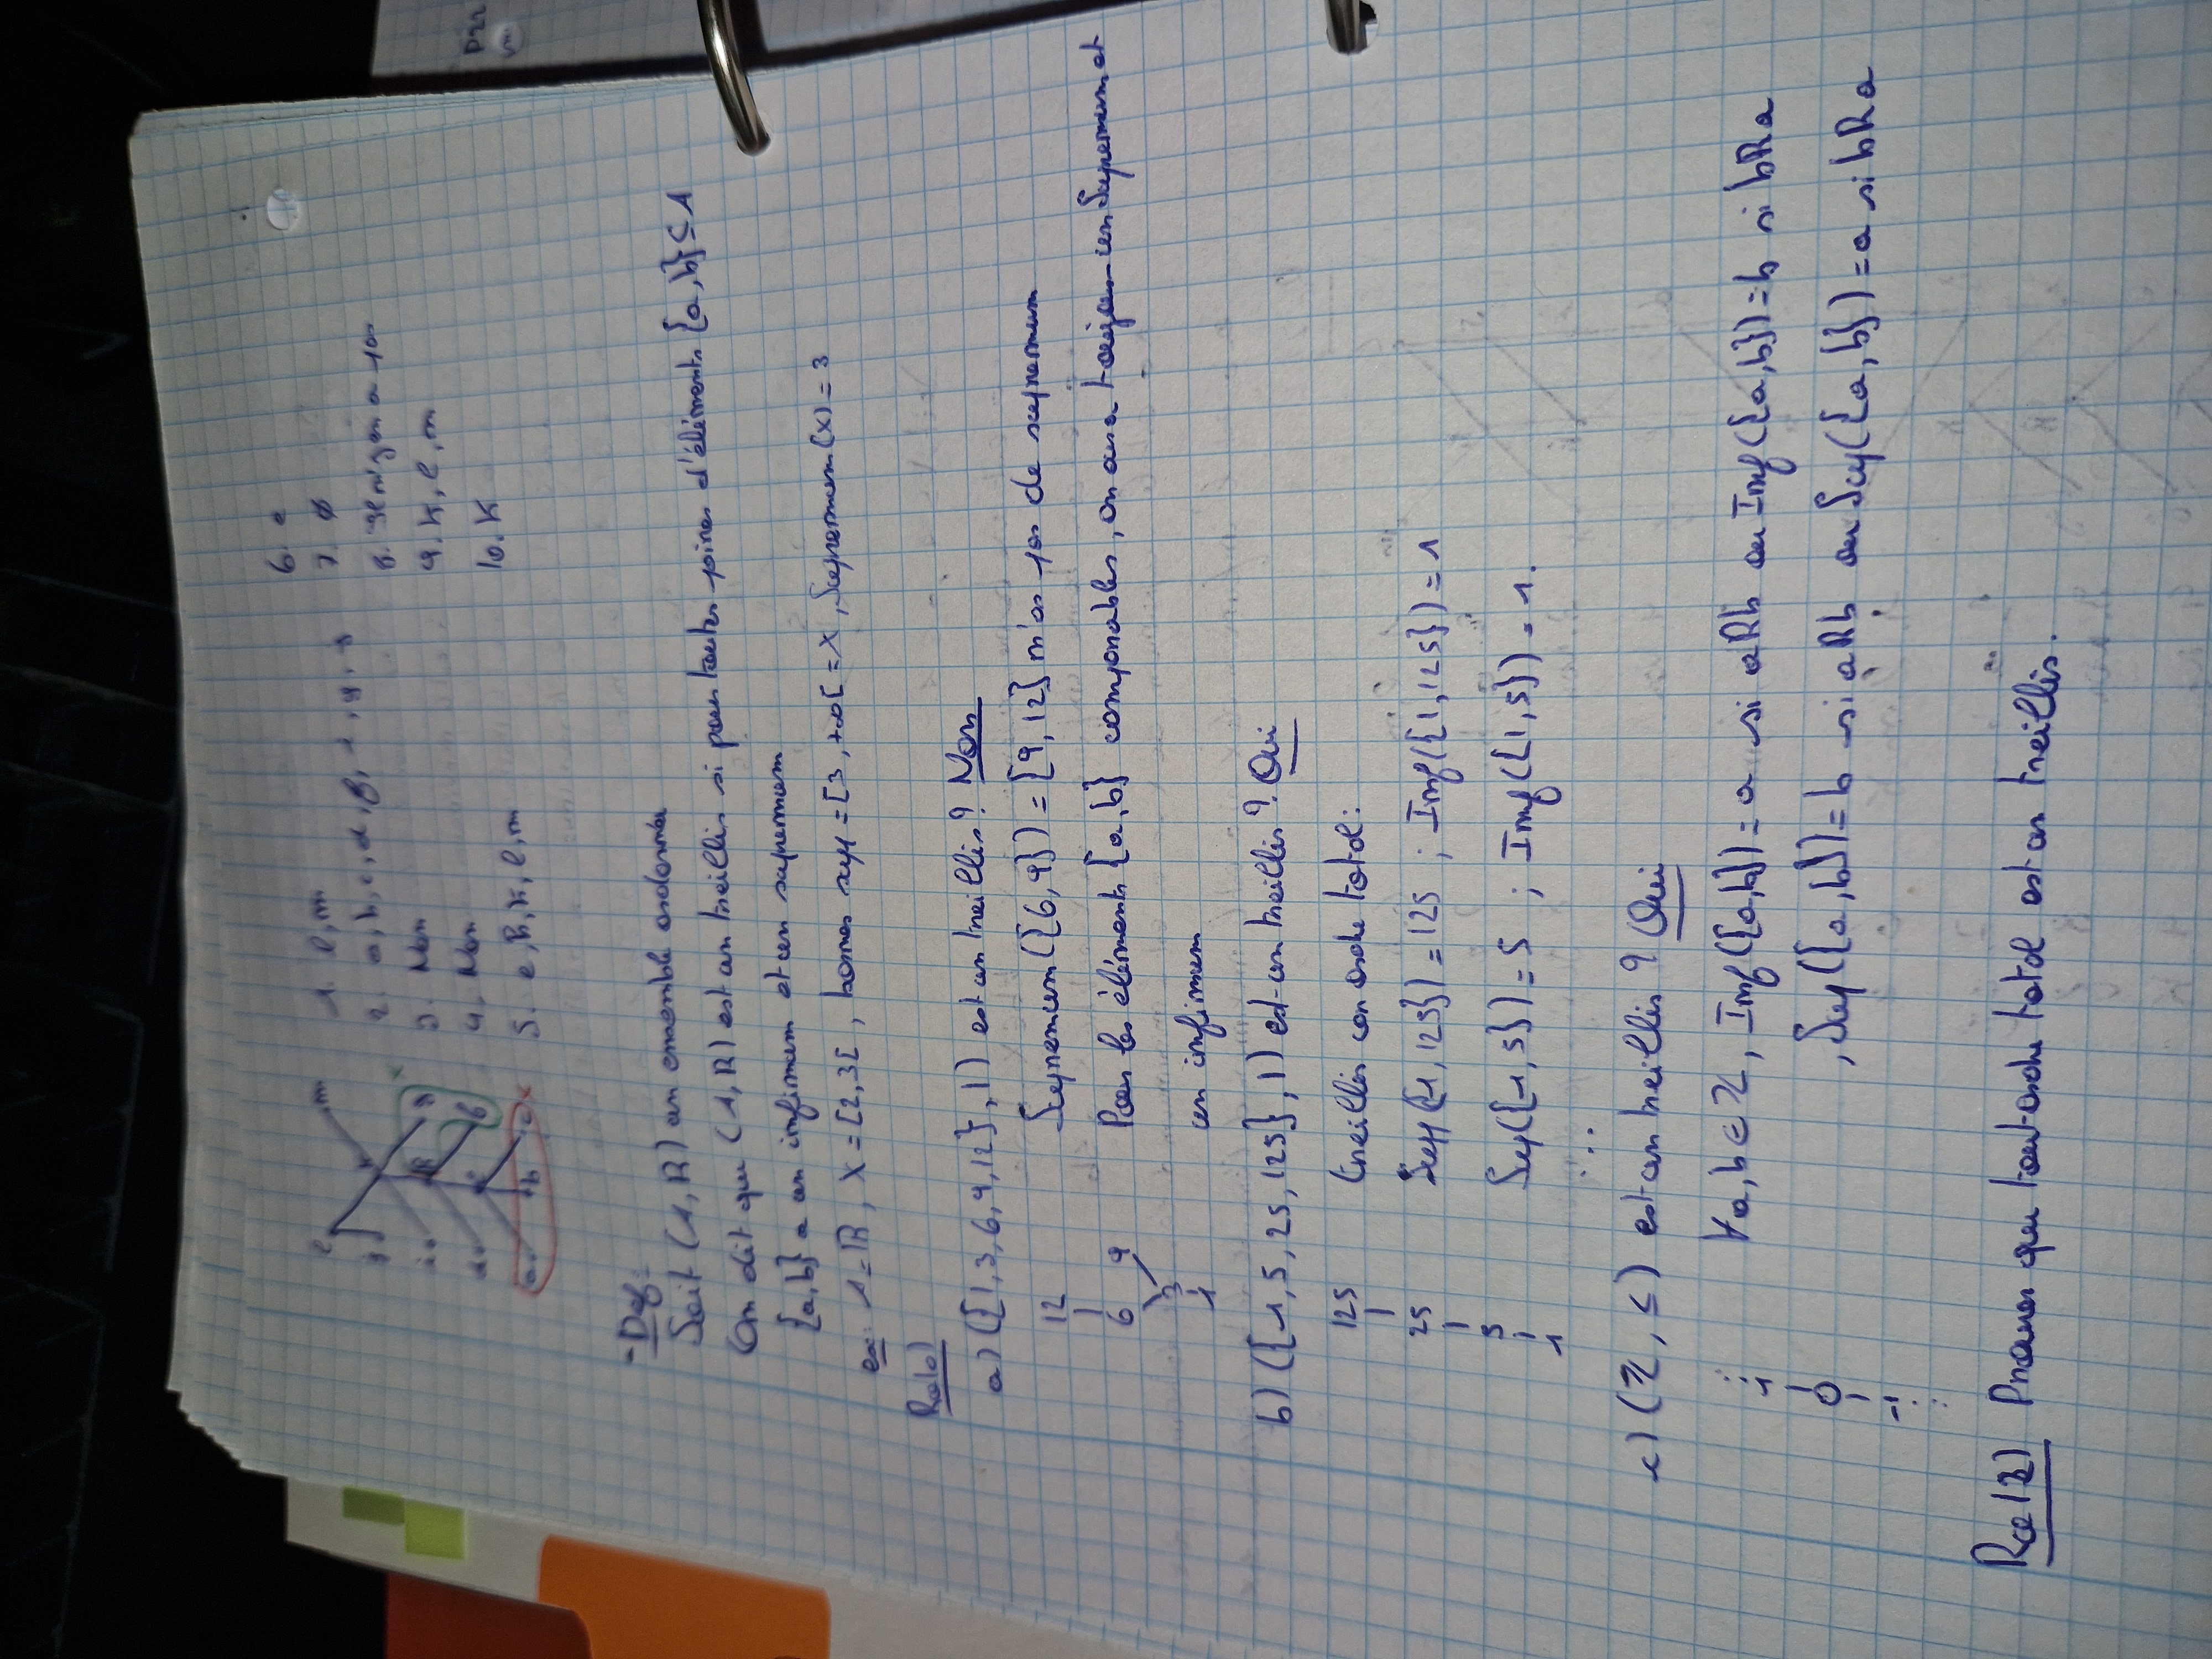 l m 1. l, m
j k 2. a, b, c, d, f, i, g, j
i h g 3. Non
d e f 4. Non
a b c 5. e, h, k, l, m
6. e
7. ∅
8. Il n'y en a pas
9. k, l, m
10. k
- Def:
Soit (A, R) un ensemble ordonnée
On dit que (A, R) est un treillis si pour toutes paires d'éléments {a, b} ⊆ A
{a,b} a un infimum et un supremum
ex: A = ℝ, X = [2,3[, bornes sup = [3, +∞[ = X, Supremum(X) = 3
a) ({1,3,6,9,12}, |) est un treillis? Non
12 Supremum({6,9}) = {9,12} n'as pas de supremum
6 9 Pour les éléments {a,b} comparables, on aura toujours un Supremum et
3
1 un infimum
b) ({1, 5, 25, 125}, |) est un treillis? Oui
125 treillis car ordre total:
25 Sup({1,125}) = 125 ; Inf({1,125}) = 1
5 Sup({1,5}) = 5 ; Inf({1,5}) = 1.
1
...
c) (ℤ, ≤) est un treillis? Oui
1 ∀a,b ∈ ℤ, Inf({a,b}) = a si aRb ou Inf({a,b}) = b si bRa
0 , Sup({a,b}) = b si aRb ou Sup({a,b}) = a si bRa
-1
Prouver que tout ordre total est un treillis.
P22